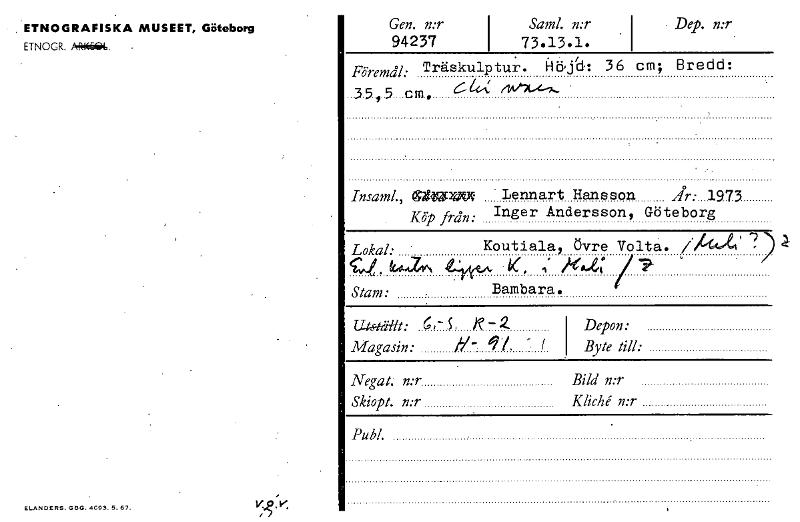 ETNOGRAFISKA MUSEET, Göteborg
ETNOGR. ARKEOL.
Gen. n:r
94237
Saml. n:r
73.13.1.
Dep. n:r
Föremål: Träskulptur. Höjd: 36 cm; Bredd:
35,5 cm. Chi wara
Insaml., Lennart Hansson År: 1973
Köp från: Inger Andersson, Göteborg
Lokal: Koutiala, Övre Volta. (Mali?)
Enl. kartor ligger K. i Mali
Stam: Bambara.
Utställt: G.-S. R-2
Depon:
Magasin: H-91.
Byte till:
Negat. n:r
Bild n:r
Skiopt. n:r
Kliché n:r
Publ.
ELANDERS. GBG. 4093. 5. 67.
v.g.v.